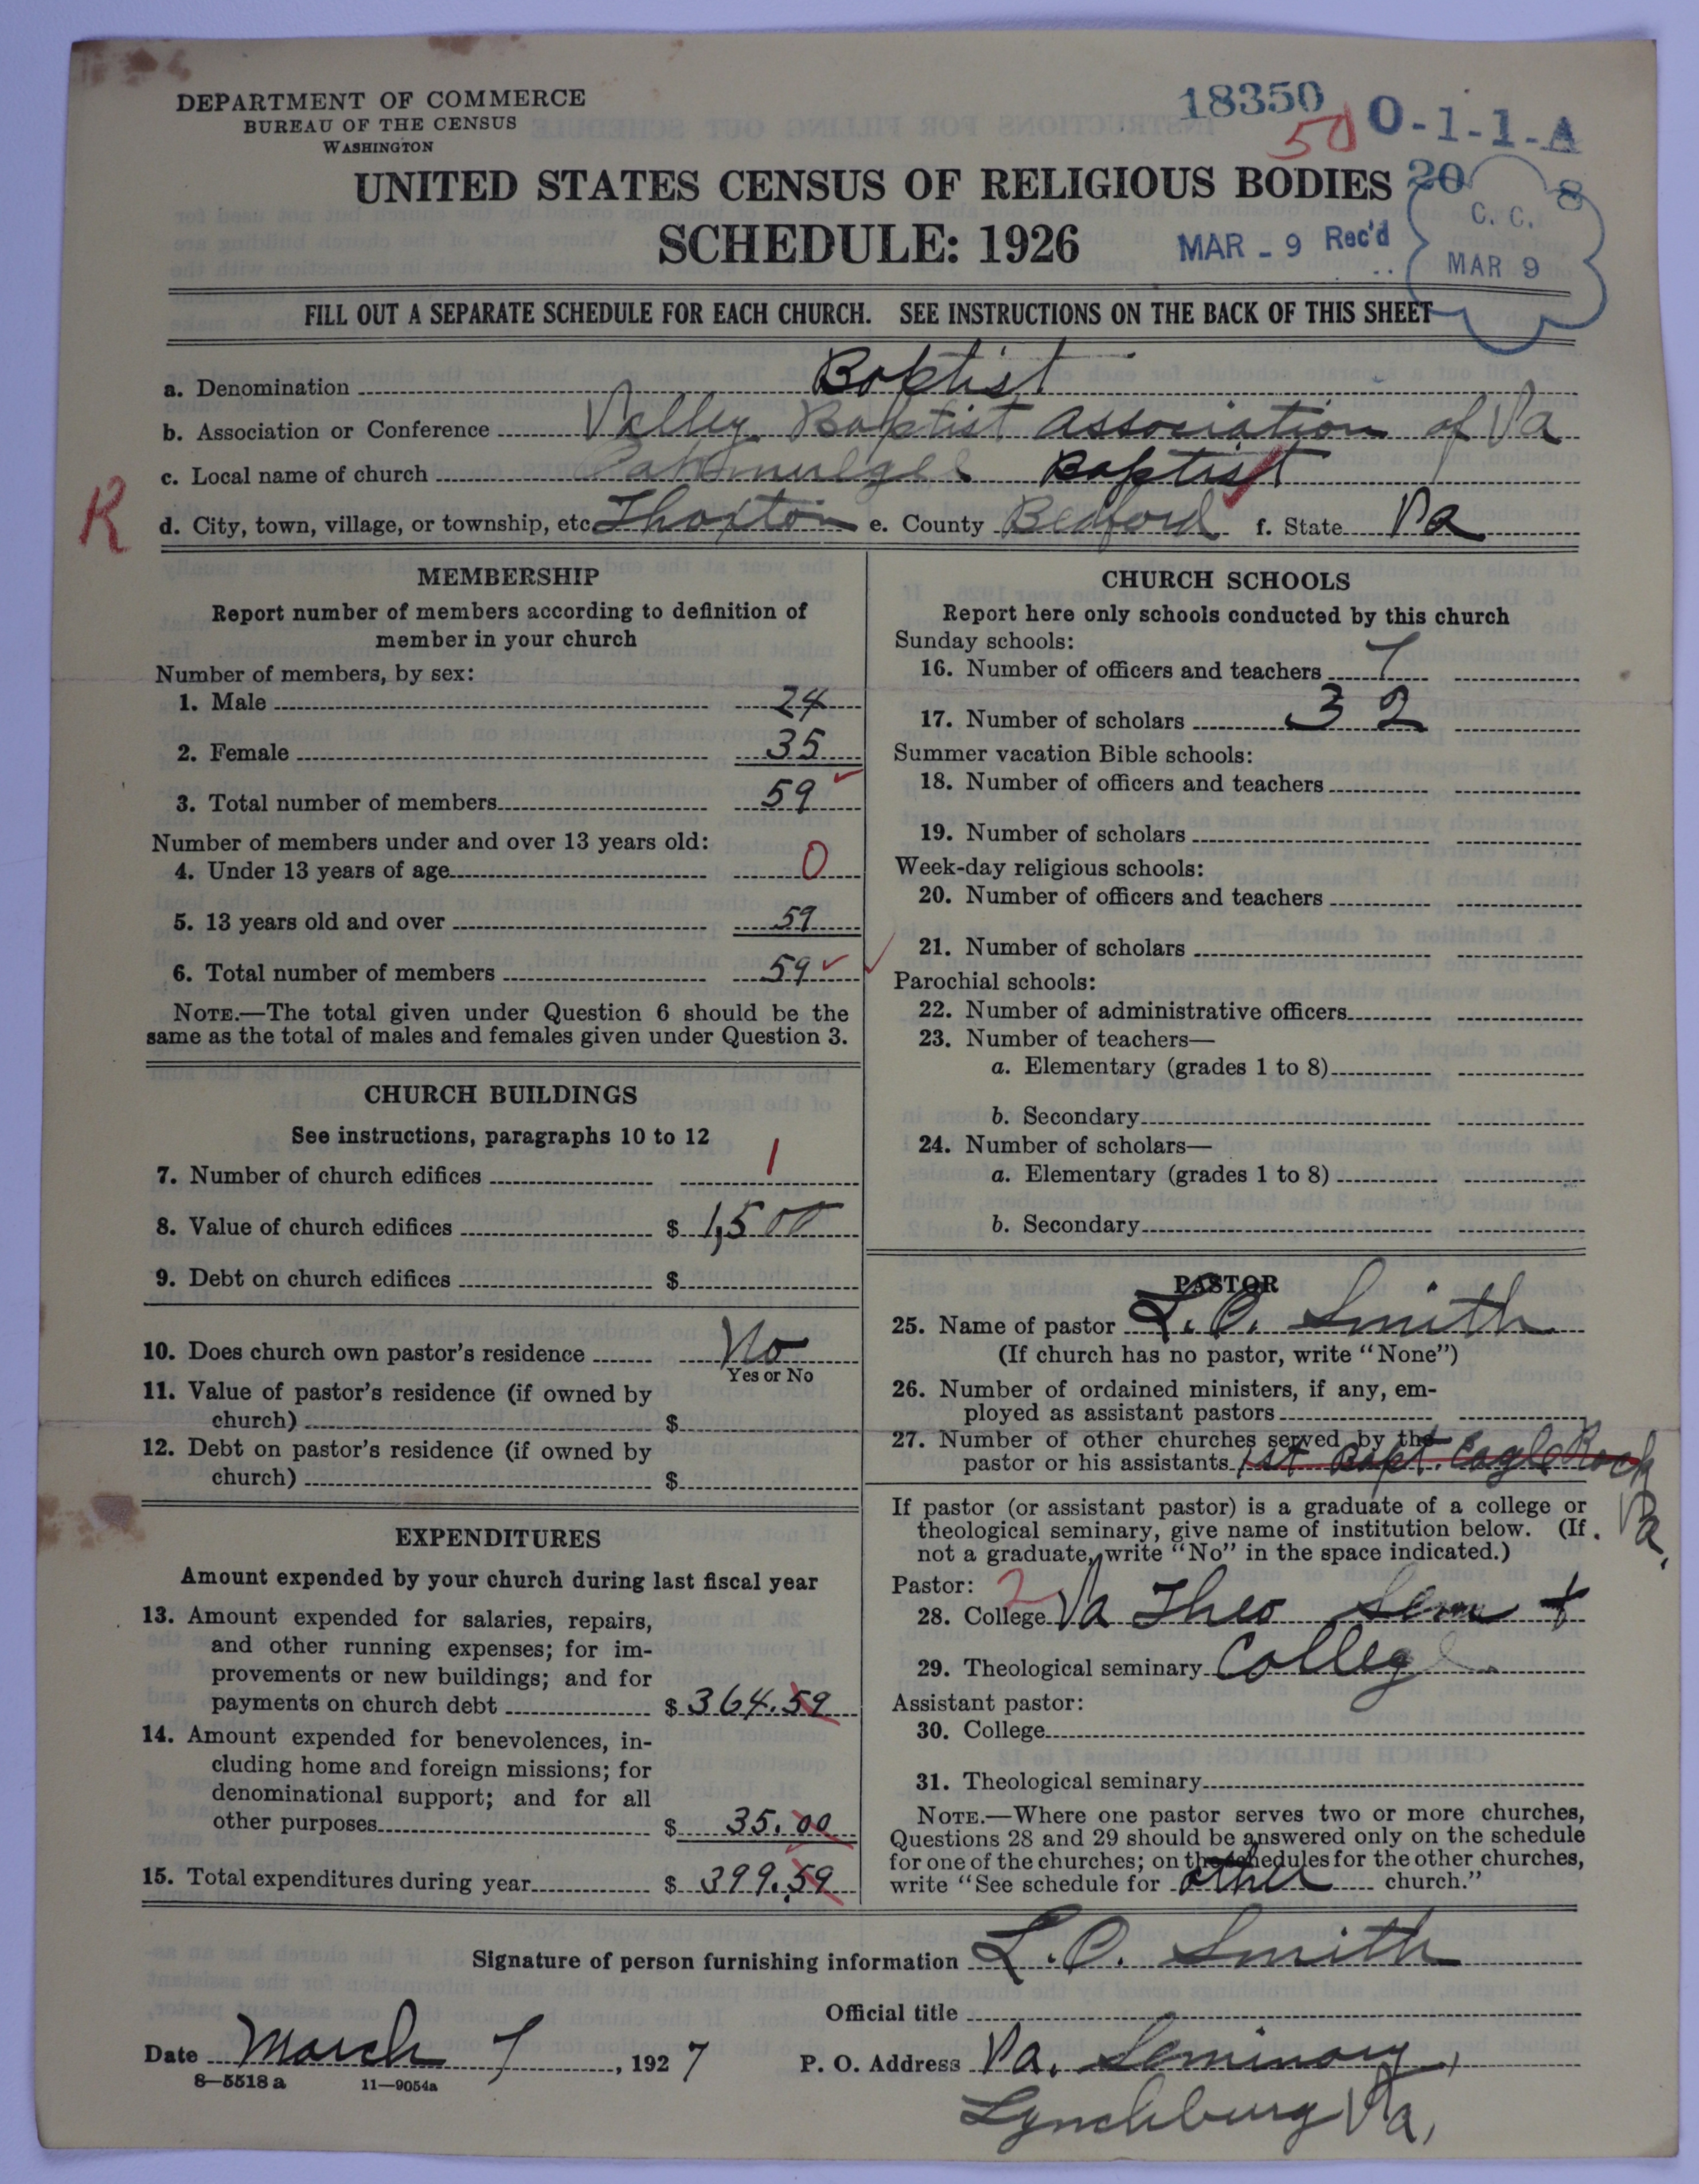 DEPARTMENT OF COMMERCE
BUREAU OF THE CENSUS
WASHINGTON
18350
50
O-1-1-A
20 8
UNITED STATES CENSUS OF RELIGIOUS BODIES
SCHEDULE: 1926
MAR - 9 Rec'd
C. C.
MAR 9
FILL OUT A SEPARATE SCHEDULE FOR EACH CHURCH. SEE INSTRUCTIONS ON THE BACK OF THIS SHEET
a. Denomination Baptist
b. Association or Conference Valley Baptist Association of Va
c. Local name of church Baptist
R
d. City, town, village, or township, etc. Thaxton e. County Bedford f. State Va
MEMBERSHIP
Report number of members according to definition of
member in your church
Number of members, by sex:
1. Male 24
2. Female 35
3. Total number of members 59
Number of members under and over 13 years old:
4. Under 13 years of age 0
5. 13 years old and over 59
6. Total number of members 59
NOTE.—The total given under Question 6 should be the
same as the total of males and females given under Question 3.
CHURCH BUILDINGS
See instructions, paragraphs 10 to 12
7. Number of church edifices 1
8. Value of church edifices $ 1,500
9. Debt on church edifices $
10. Does church own pastor's residence No
Yes or No
11. Value of pastor's residence (if owned by
church) $
12. Debt on pastor's residence (if owned by
church) $
EXPENDITURES
Amount expended by your church during last fiscal year
13. Amount expended for salaries, repairs,
and other running expenses; for im-
provements or new buildings; and for
payments on church debt $ 364.59
14. Amount expended for benevolences, in-
cluding home and foreign missions; for
denominational support; and for all
other purposes $ 35.00
15. Total expenditures during year $ 399.59
CHURCH SCHOOLS
Report here only schools conducted by this church
Sunday schools:
16. Number of officers and teachers 7
17. Number of scholars 32
Summer vacation Bible schools:
18. Number of officers and teachers
19. Number of scholars
Week-day religious schools:
20. Number of officers and teachers
21. Number of scholars
Parochial schools:
22. Number of administrative officers
23. Number of teachers—
a. Elementary (grades 1 to 8)
b. Secondary
24. Number of scholars—
a. Elementary (grades 1 to 8)
b. Secondary
PASTOR
25. Name of pastor L. C. Smith
(If church has no pastor, write "None")
26. Number of ordained ministers, if any, em-
ployed as assistant pastors
27. Number of other churches served by the
pastor or his assistants 1st Bapt. Eagle Rock
Va.
If pastor (or assistant pastor) is a graduate of a college or
theological seminary, give name of institution below. (If
not a graduate, write "No" in the space indicated.)
Pastor: 2
28. College Va Theo Sem +
29. Theological seminary College
Assistant pastor:
30. College
31. Theological seminary
NOTE.—Where one pastor serves two or more churches,
Questions 28 and 29 should be answered only on the schedule
for one of the churches; on the schedules for the other churches,
write "See schedule for other church."
Signature of person furnishing information L. C. Smith
Official title
Date March 7, 1927
P. O. Address Va. Seminary,
Lynchburg Va,
8—5518 a 11—9054a